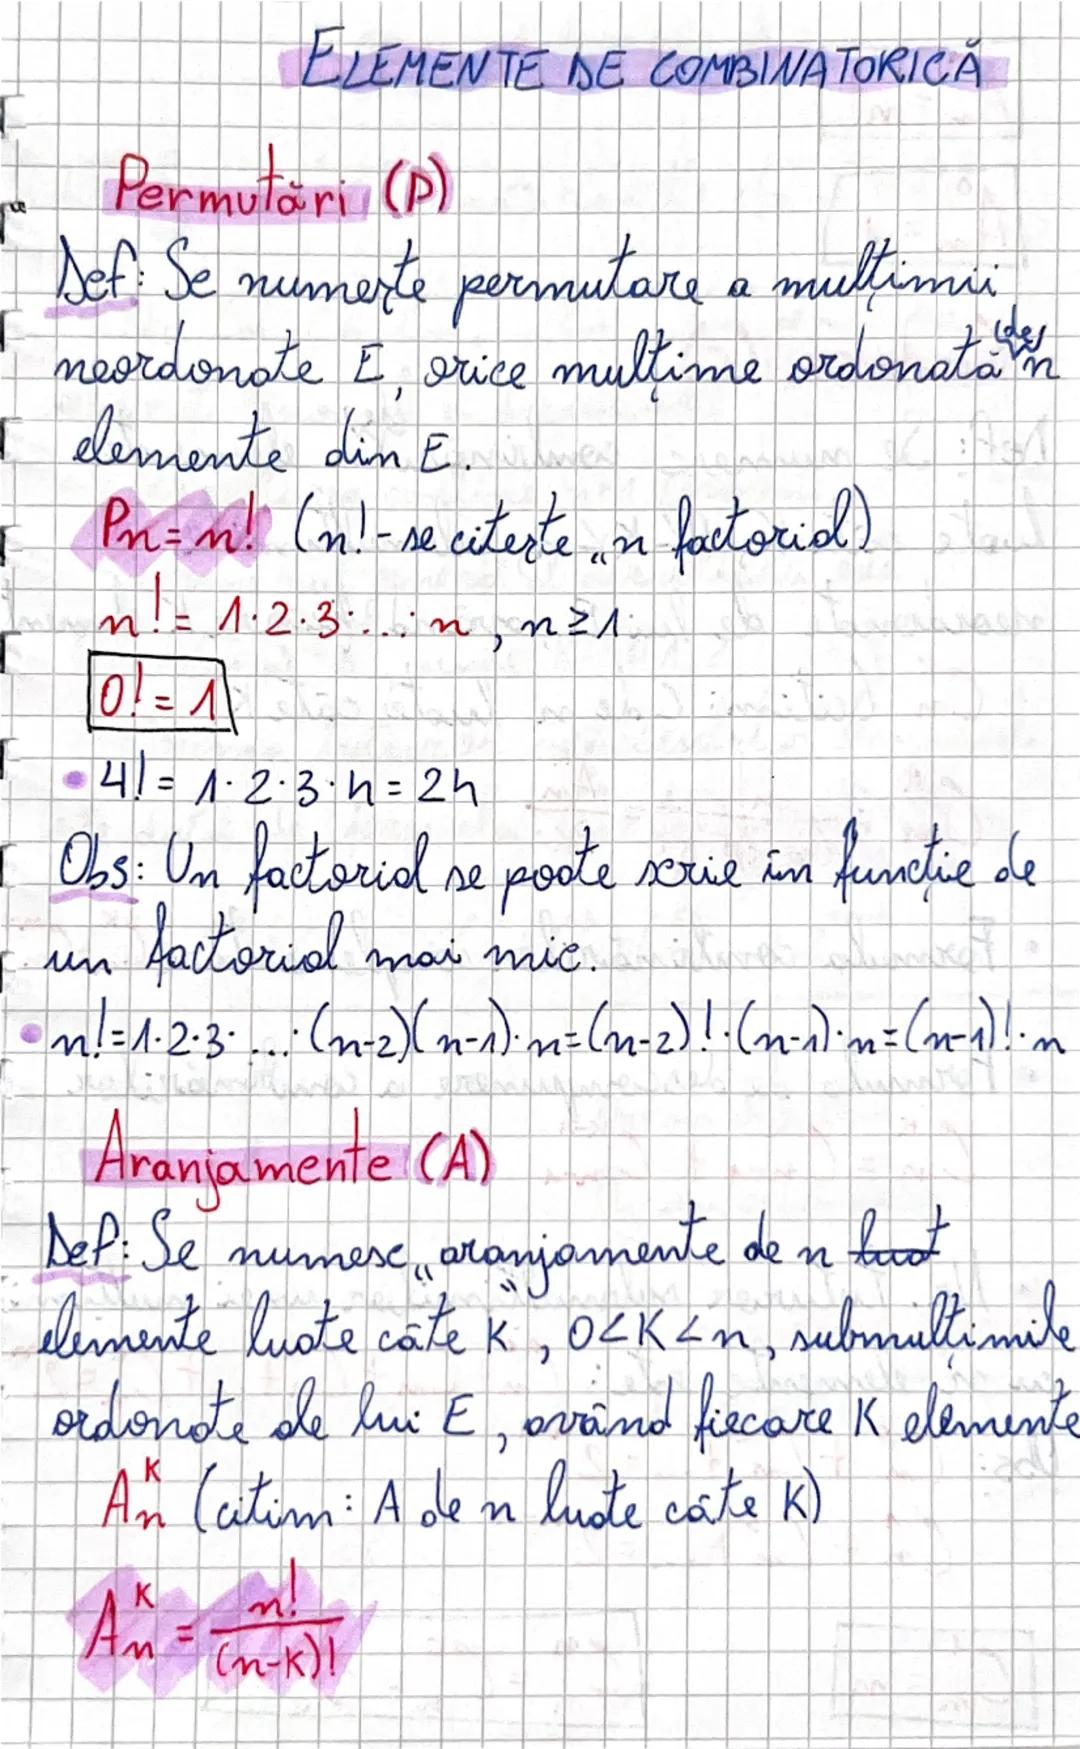 ELEMENTE DE COMBINATORICĂ
Permutări (P)
Def: Se numește permutare a mulțimii
neordonate E, orice mulțime ordonată (de) n
elemente din E.
Pn = n! (n! - se citește „n factorial)
n! = 1·2·3·...·n, n≥1
0! = 1
• 4! = 1·2·3·4 = 24
Obs: Un factorial se poate scrie în funcție de
un factorial mai mic.
• n! = 1·2·3·...·(n-2)(n-1)·n = (n-2)!·(n-1)·n = (n-1)!·n
Aranjamente (A)
Def: Se numesc „aranjamente de n luat
elemente luate câte K”, 0<K<n, submulțimile
ordonate ale lui E, având fiecare K elemente
Aₙᴷ (citim: A de n luate câte K)
Aₙᴷ = n!/(n-K)!